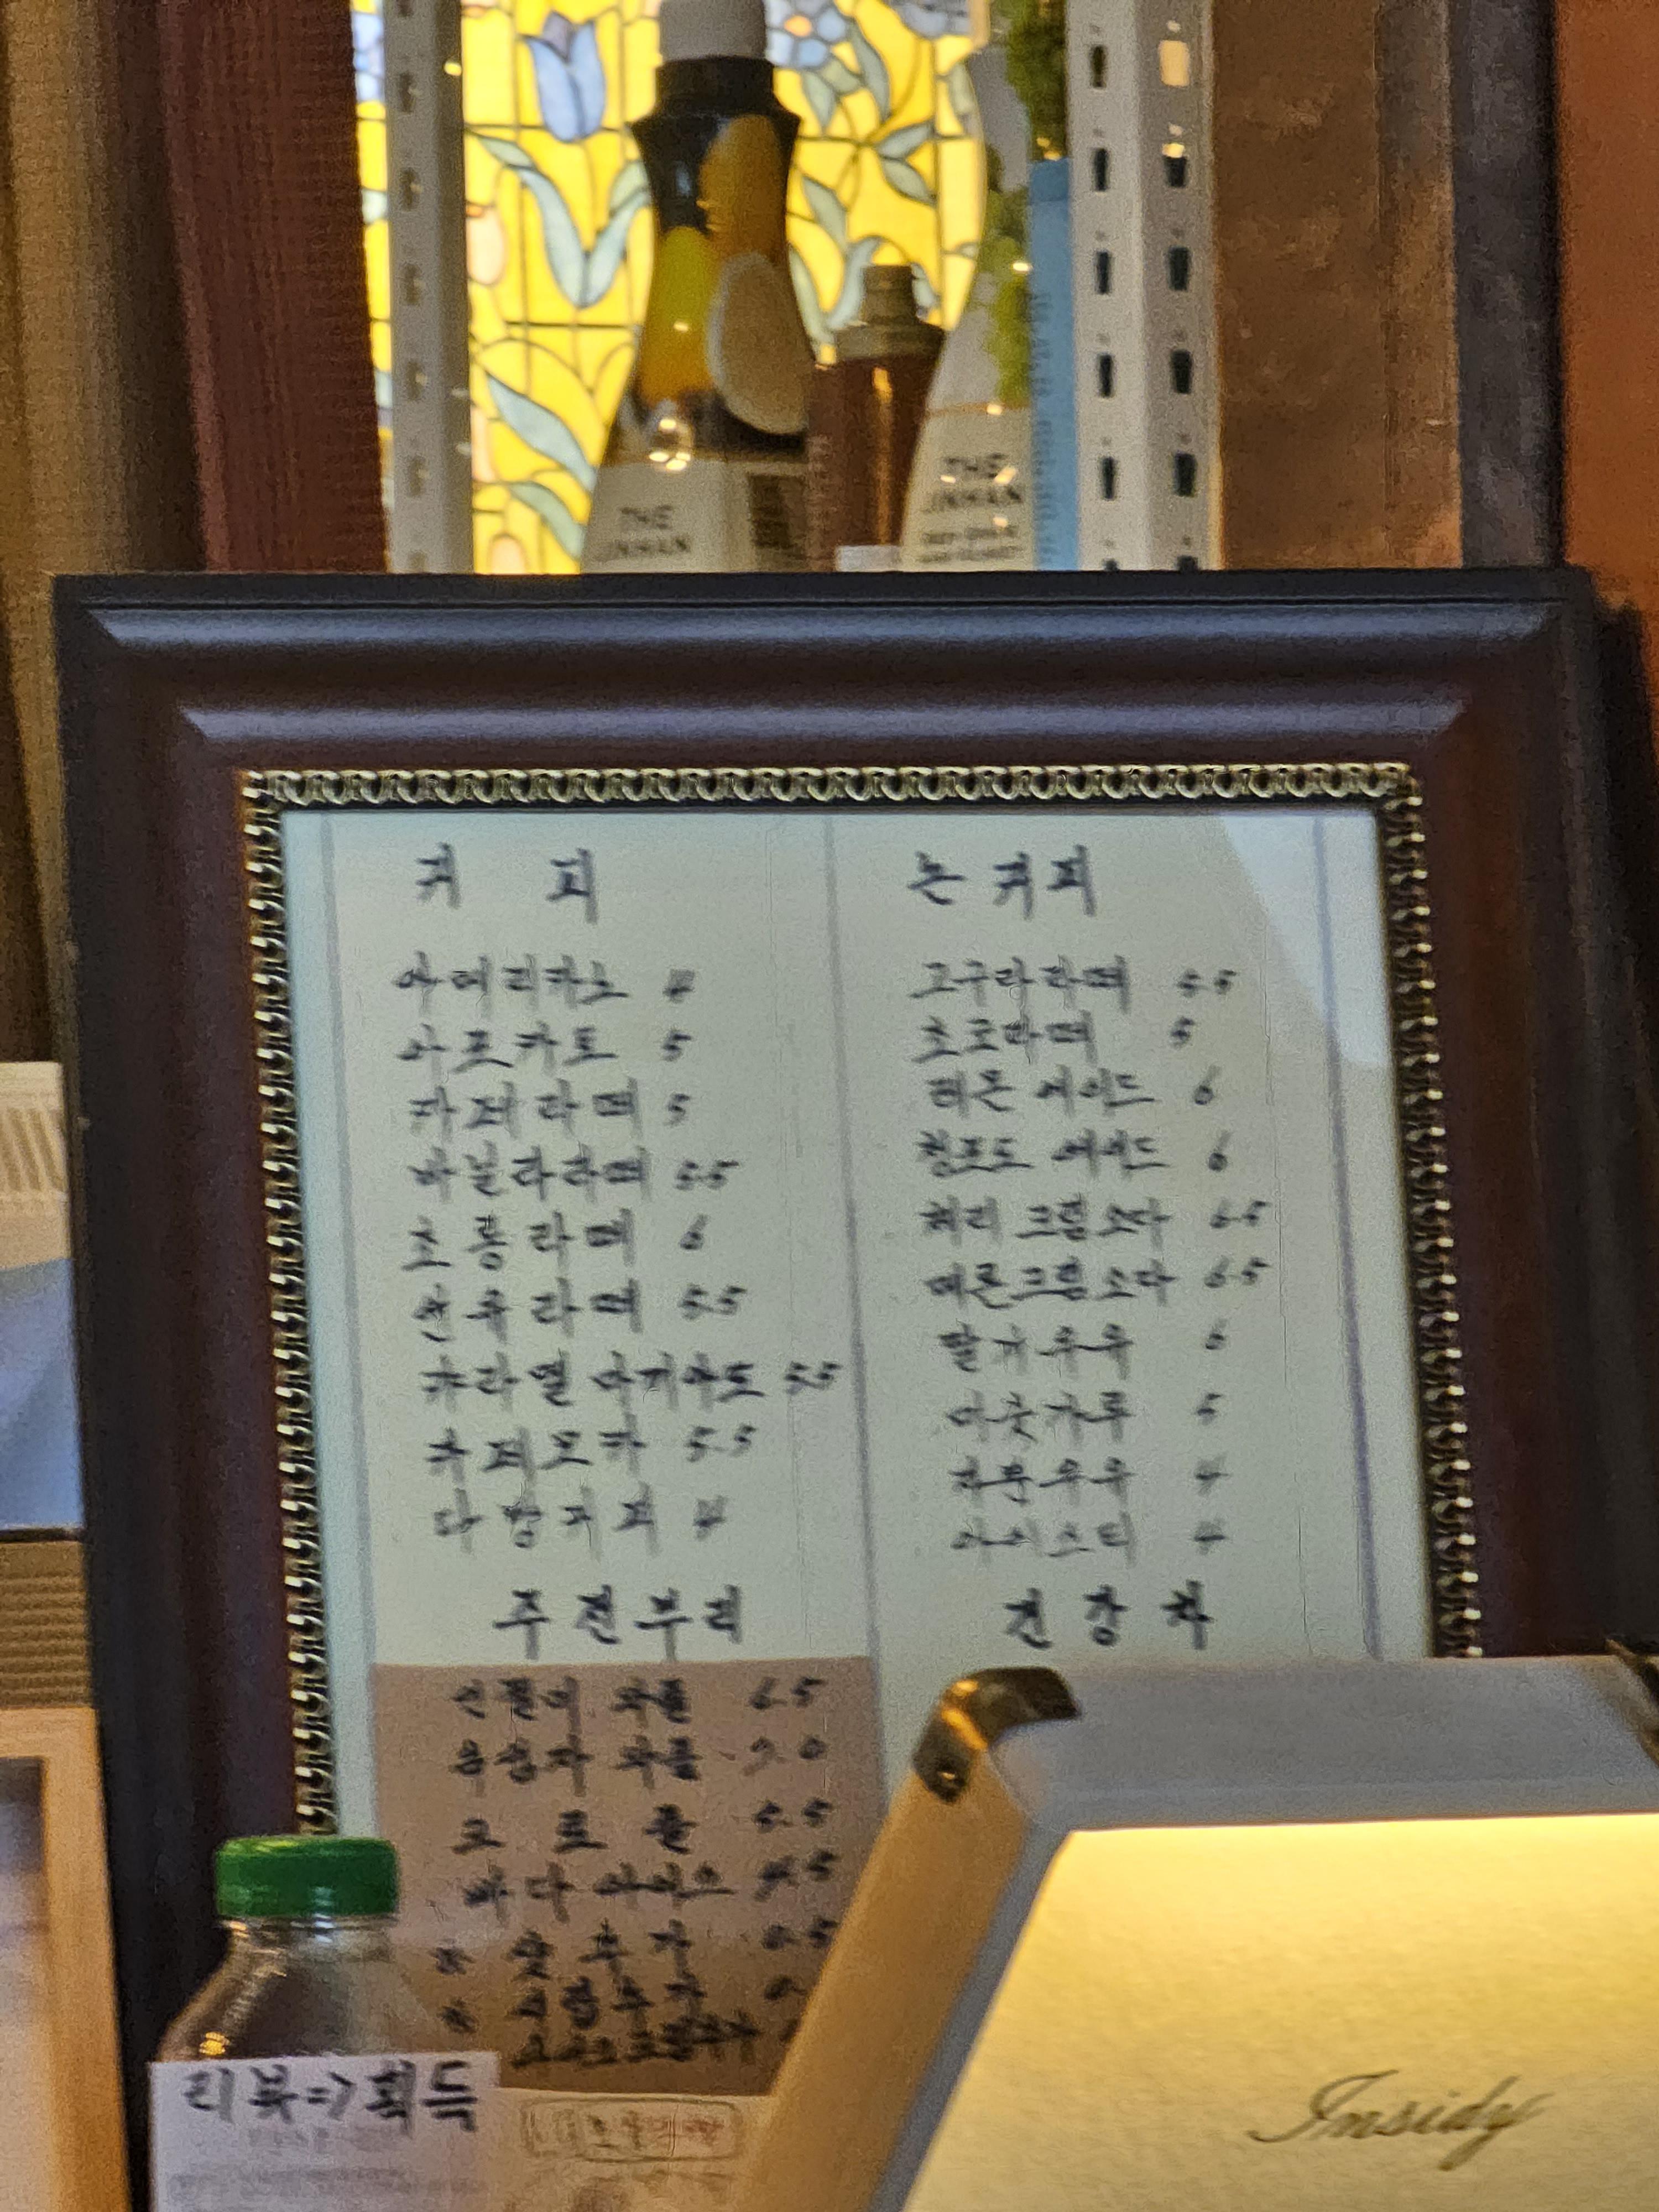 THE
JINHAN
THE
JINHAN
커 피
아메리카노 4
아포카토 5
카페라떼 5
바닐라라떼 5.5
초퐁라떼 6
연유라떼 5.5
캬라멜 마끼아또 5.5
카페모카 5.5
다방커피 4
주전부리
인절미 와플 6.5
유심자 와플 7.0
크로플 5.5
바다 아이스 4.5
* 샷추가 0.5
* 시럽추가
논커피
고구마라떼 5.5
초코라떼 5
레몬 에이드 6
청포도 에이드 6
체리크림소다 6.5
메론크림소다 6.5
딸기우유 6
미숫가루 5
화분우유 4
아이스티 4
건강차
리뷰=>획득
Insidy